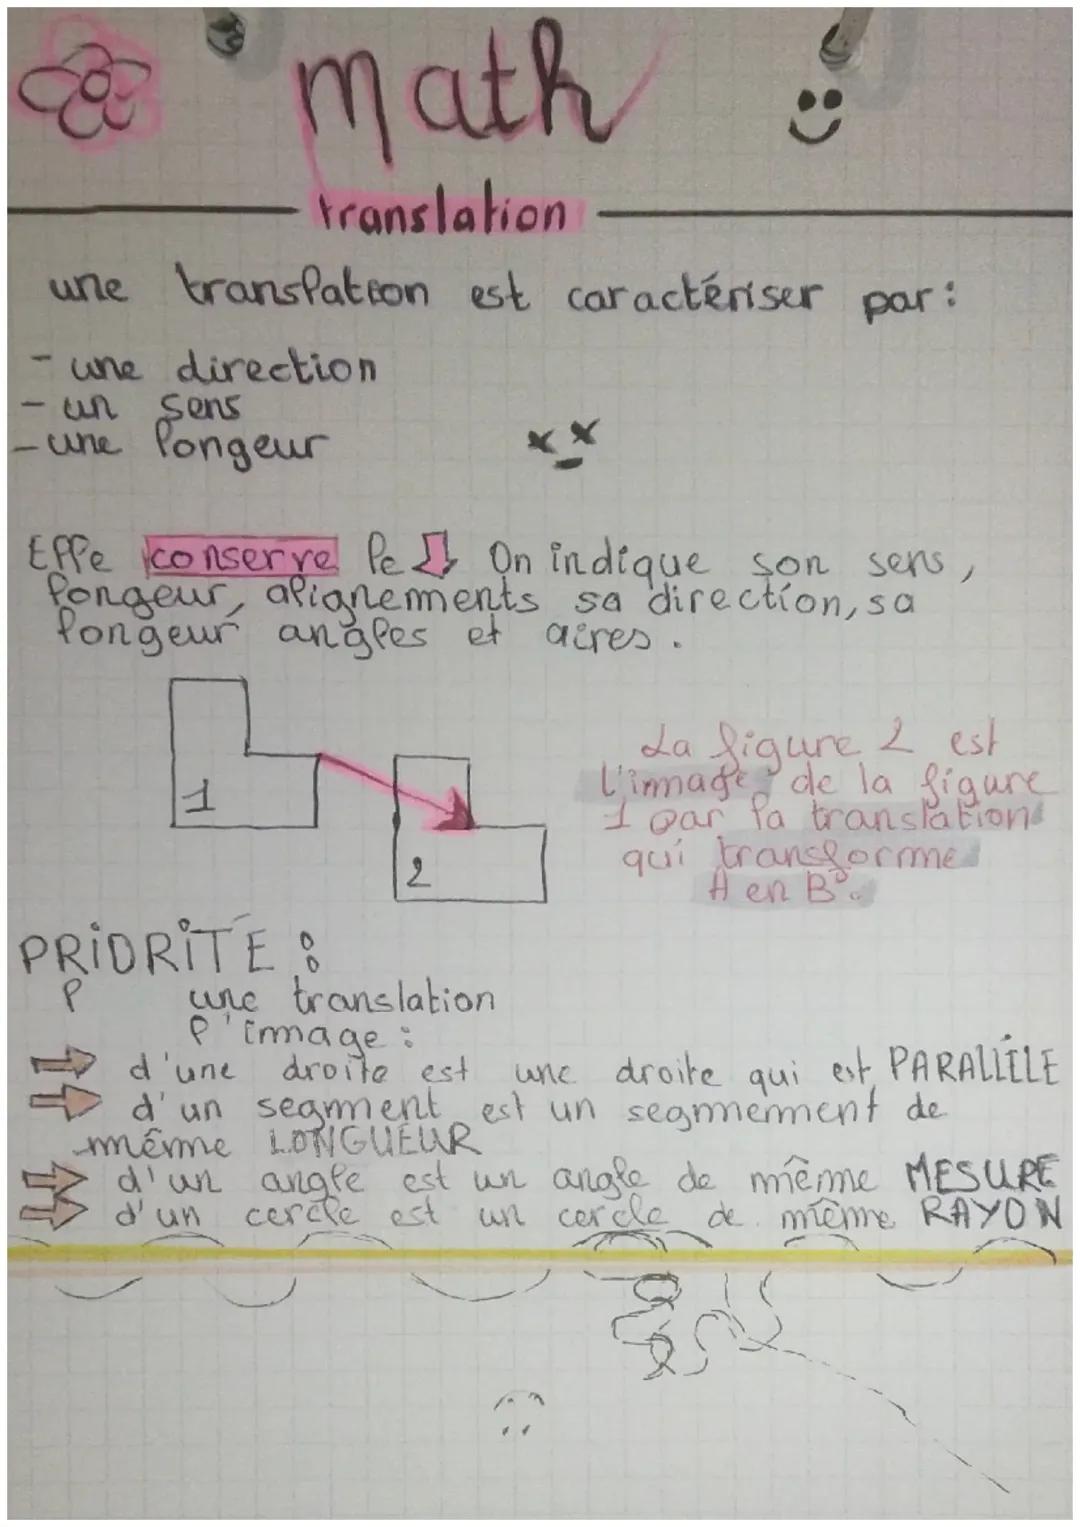 math
translation
une translation est caractériser par :
- une direction
- un sens
- une longeur
Elle conserve le On indique son sens,
longeur, alignements sa direction, sa
longeur angles et aires.
1
2
La figure 2 est
l'immage de la figure
1 par la translation
qui transforme
A en B.
PRIORITÉ :
une translation
l'image :
d'une droite est une droite qui est PARALLÈLE
d'un segment est un segmement de
même LONGUEUR
d'un angle est un angle de même MESURE
d'un cercle est un cercle de même RAYON